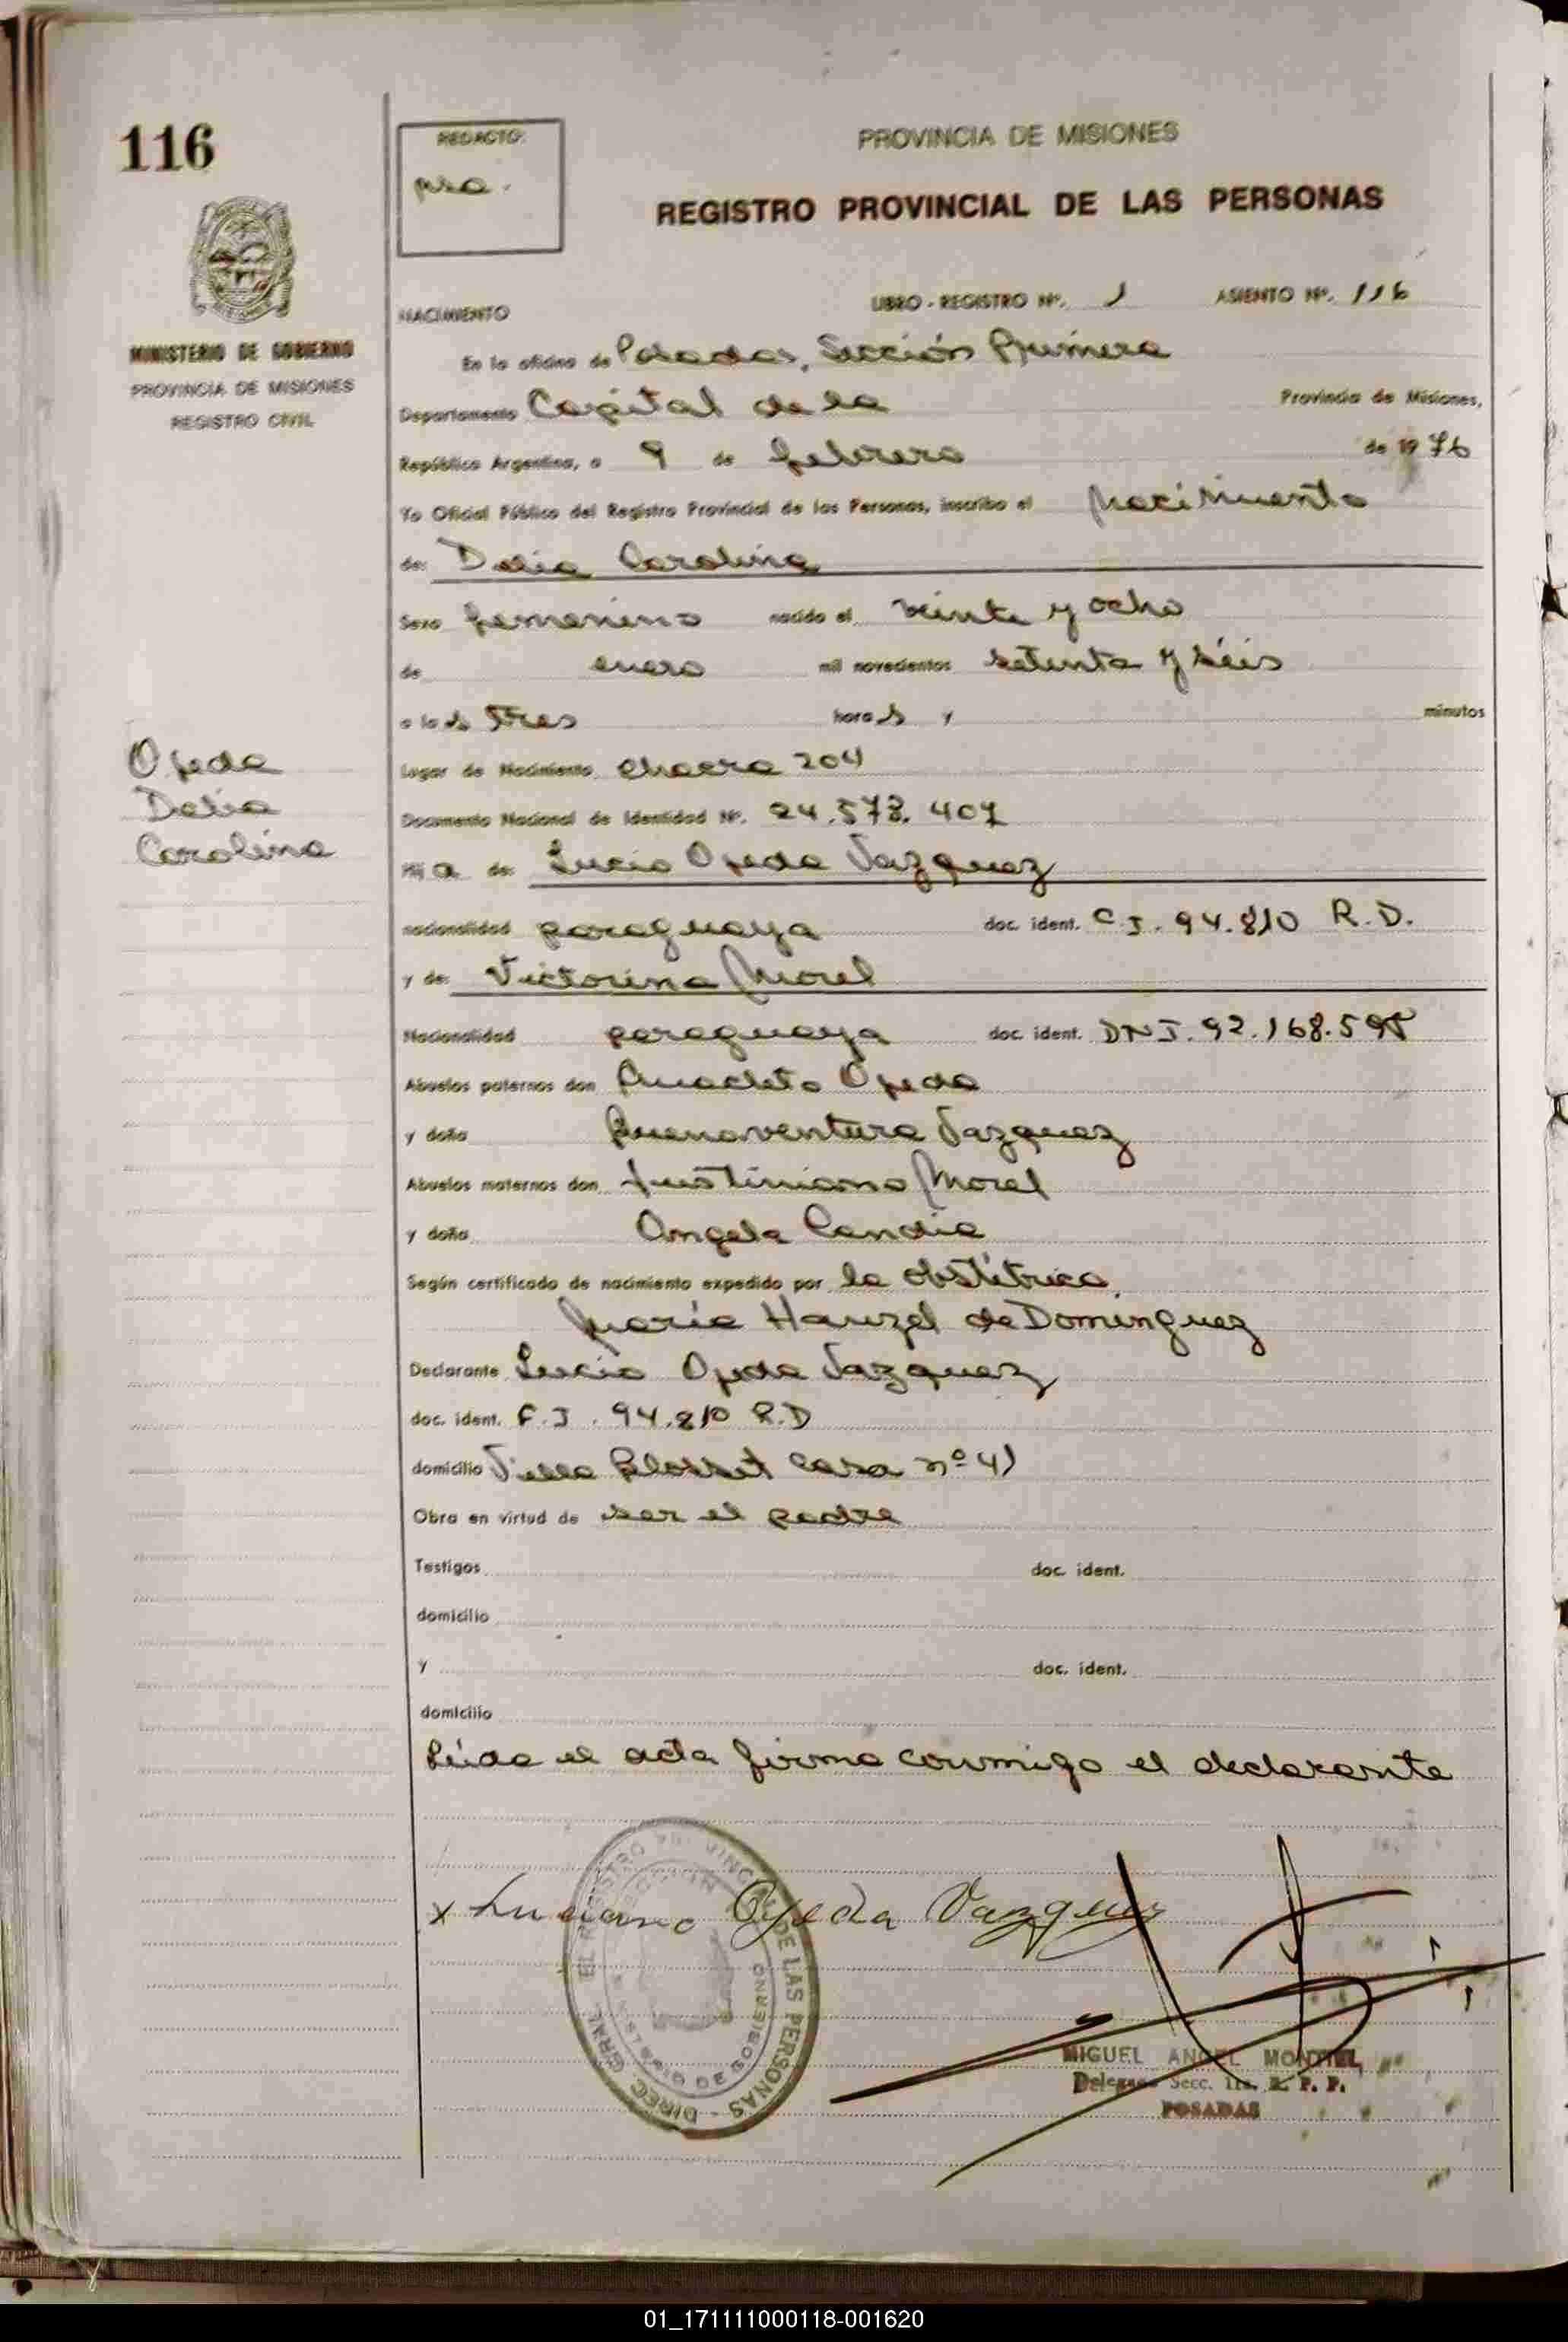 116
REDACTO:
PROVINCIA DE MISIONES
REGISTRO PROVINCIAL DE LAS PERSONAS
MINISTERIO DE GOBIERNO
PROVINCIA DE MISIONES
REGISTRO CIVIL
NACIMIENTO LIBRO - REGISTRO Nº. 1 ASIENTO Nº. 116
En la oficina de Posadas, Sección Primera
Departamento Capital de la Provincia de Misiones,
República Argentina, a 9 de febrero de 1976
Yo Oficial Público del Registro Provincial de las Personas, inscribo el Nacimiento
de: Delia Carolina
Sexo femenino nacido el veinte y ocho
de enero mil novecientos setenta y séis
a las tres horas y minutos
Ojeda
Delia
Carolina
Lugar de Nacimiento chacra 204
Documento Nacional de Identidad Nº. 24.573.407
Hija de: Lucio Ojeda Vazquez
nacionalidad paraguaya doc. ident. C.I. 94.810 R.D.
y de: Victorina Morel
Nacionalidad paraguaya doc. ident. DNI. 92.168.595
Abuelos paternos don Anacleto Ojeda
y doña Buenaventura Vazquez
Abuelos maternos don Justiniano Morel
y doña Angela Candia
Según certificado de nacimiento expedido por la obstétrica,
María Hauzel de Dominguez
Declarante Lucio Ojeda Vazquez
doc. ident. C.I. 94.810 R.D
domicilio Villa Blosset casa nº 41
Obra en virtud de ser el padre
Testigos doc. ident.
domicilio
y doc. ident.
domicilio
Léida el acta firma conmigo el declarante
x Luciano Ojeda Vazquez
DIREC. GRAL. DEL REGISTRO PROVINCIAL DE LAS PERSONAS
MINISTERIO DE GOBIERNO
MIGUEL ANGEL MONTIEL
Delegado Secc. 1ra. R. P. P.
POSADAS
01_171111000118-001620